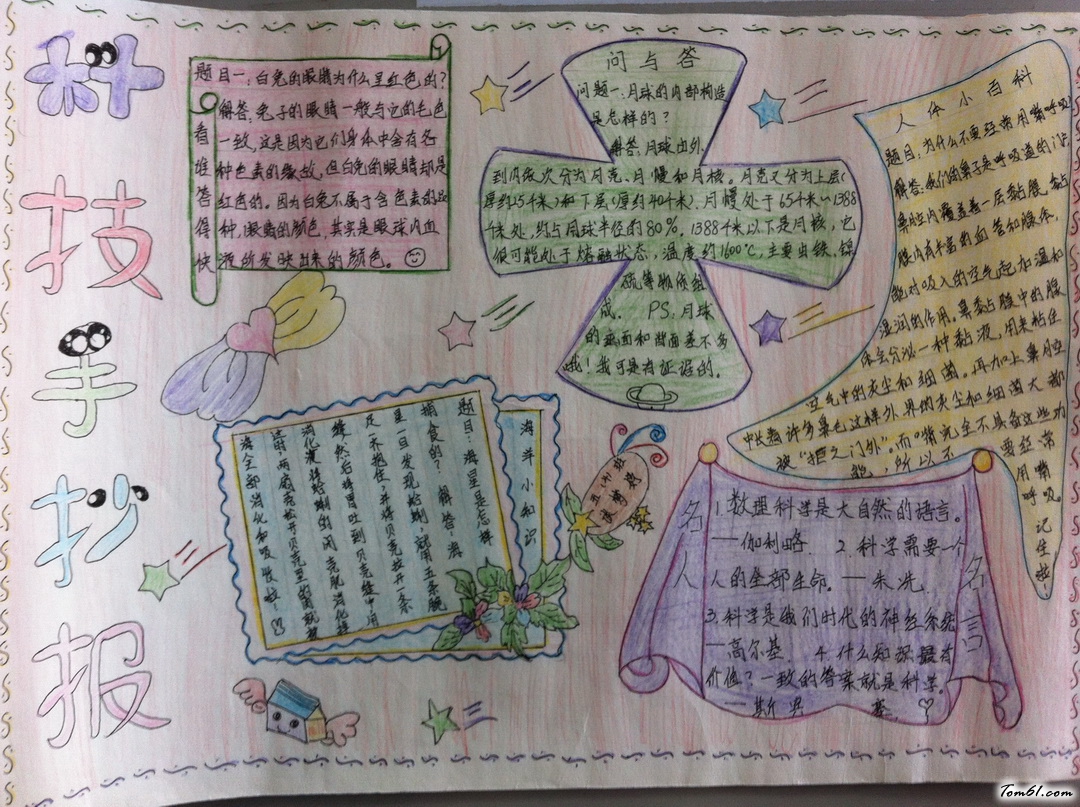 科技手抄报
看谁答得快
题目一:白兔的眼睛为什么呈红色的?
解答:兔子的眼睛一般与它的毛色
一致,这是因为它们身体中含有各
种色素的缘故,但白兔的眼睛却是
红色的。因为白兔不属于含色素的品
种,眼睛的颜色,其实是眼球内血
液所反映出来的颜色。
问与答
问题一:月球的内部构造
是怎样的?
解答:月球由外
到内依次分为月壳、月幔和月核。月壳又分为上层(
厚约25千米)和下层(厚约40千米),月幔处于65千米~1388
千米处,约占月球半径的80%。1388千米以下是月核,它
很可能处于熔融状态,温度约1600℃,主要由铁、镍
硫等物质组
成。 PS:月球
的正面和背面差不多
哦!我可是有证据的。
人体小百科
题目:为什么不要经常用嘴呼吸
解答:我们的鼻子是呼吸道的门户
鼻腔内覆盖着一层黏膜,黏
膜内有丰富的血管和腺体,
能对吸入的空气起加温和
湿润的作用。鼻黏膜中的腺
体会分泌一种黏液,用来粘住
空气中的灰尘和细菌。再加上鼻腔
中长着许多鼻毛这样外界的灰尘和细菌大都
被“拒之门外”。而口腔完全不具备这些功
能,所以不
要经常
用嘴
呼吸
记住啦!
海洋小知识
题目:海星是怎样
捕食的? 解答:海
星一旦发现蛤蜊,就用五条腕
足齐抱住,并将贝壳拉开一条
缝然后将胃吐到贝壳缝中用
消化液将蛤蜊的闭壳肌消化掉
这时两扇壳就打开贝壳里的肉就被
海全部消化和吸收啦!
名人名言
1.数理科学是大自然的语言。
——伽利略. 2.科学需要一个
人的全部生命。—朱冼.
3.科学是我们时代的神经系统
—高尔基. 4.什么知识最有
价值?一致的答案就是科学。
——斯宾塞
Tom61.com